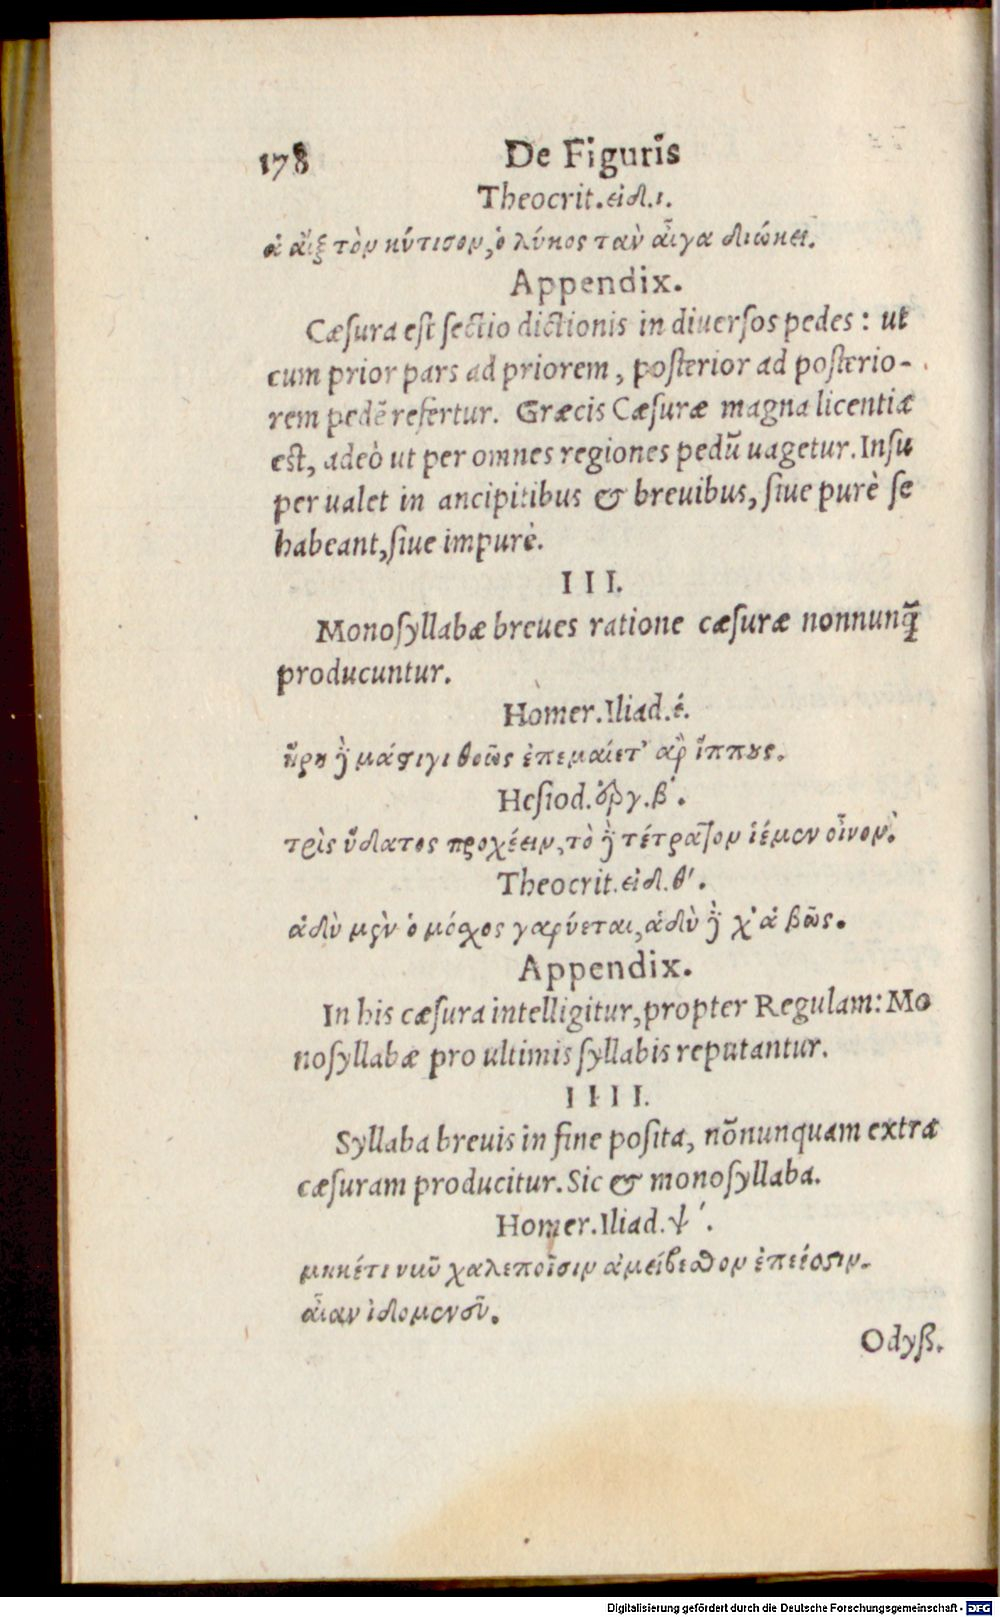 178 De Figuris
Theocrit. εἰδ. 1.
ἁ αἲξ τὸν κύτισον, ὁ λύκος τὰν αἶγα διώκει.
Appendix.
Cæſura eſt ſectio dictionis in diuerſos pedes: ut
cum prior pars ad priorem, poſterior ad poſterio-
rem pedē refertur. Græcis Cæſuræ magna licentia
est, adeò ut per omnes regiones pedū uagetur. Inſu
per ualet in ancipitibus & breuibus, ſiue purè ſe
habeant, ſiue impurè.
III.
Monoſyllabæ breues ratione cæſuræ nonnunq̃
producuntur.
Homer. Iliad. έ.
ἥρη δὲ μάςιγι θοῶς ἐπεμαίετ' ἄρ' ἵππους.
Heſiod. ἔργ. β'.
τρὶς ὕδατος προχέειν, τὸ δὲ τέτρατον ἱέμεν οἶνον.
Theocrit. εἰδ. θ'.
ἁδὺ μὲν ὁ μόσχος γαρύεται, ἁδὺ δὲ χ' ἁ βῶς.
Appendix.
In his cæſura intelligitur, propter Regulam: Mo
noſyllabæ pro ultimis ſyllabis reputantur.
IIII.
Syllaba breuis in fine poſita, nōnunquam extra
cæſuram producitur. Sic & monoſyllaba.
Homer. Iliad. ψ'.
μηκέτι νῦν χαλεποῖσιν ἀμείβεσθον ἐπέεσσιν.
αἶαν ἰδομενεῦ.
Odyß.
Digitalisierung gefördert durch die Deutsche Forschungsgemeinschaft - DFG